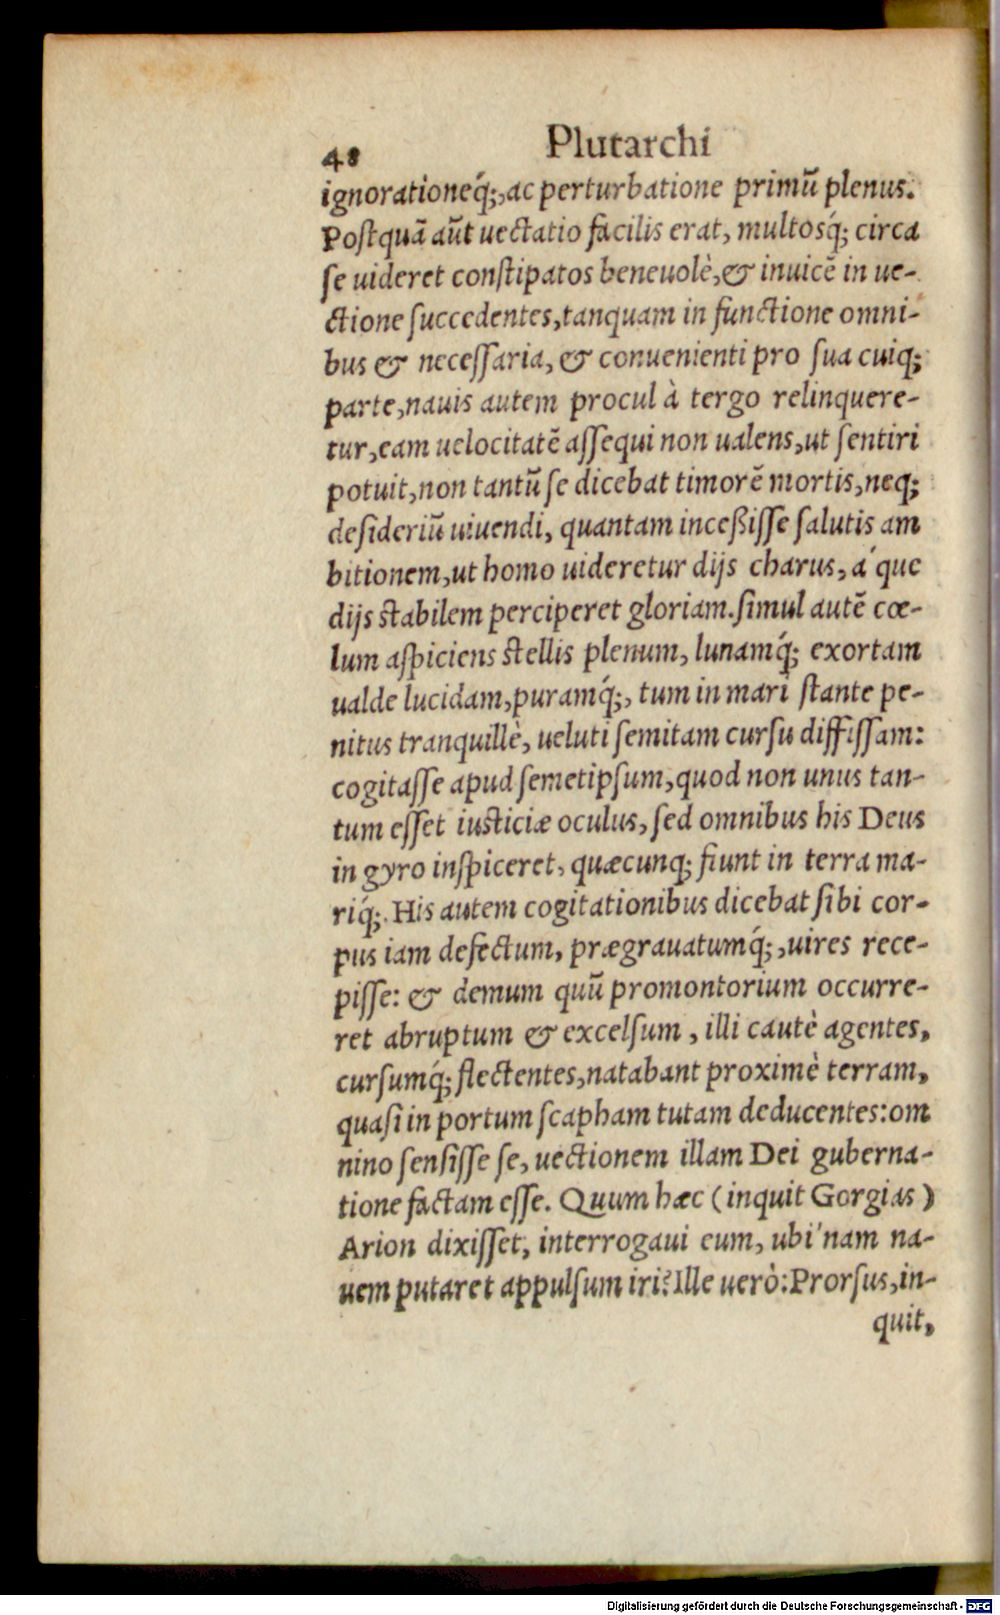 48 Plutarchi
ignorationeq́;, ac perturbatione primū plenus.
Poſtquā aūt uectatio facilis erat, multosq́; circa
ſe uideret conſtipatos beneuolè, & inuicē in ue-
ctione ſuccedentes, tanquam in functione omni-
bus & neceſſaria, & conuenienti pro ſua cuiq;
parte, nauis autem procul à tergo relinquere-
tur, eam uelocitatē aſſequi non ualens, ut ſentiri
potuit, non tantū ſe dicebat timorē mortis, neq;
deſideriū uiuendi, quantam inceßiſſe ſalutis am
bitionem, ut homo uideretur dijs charus, á que
dijs ſtabilem perciperet gloriam. ſimul autē cœ-
lum aſpiciens ſtellis plenum, lunamq́; exortam
ualde lucidam, puramq́;, tum in mari ſtante pe-
nitus tranquillè, ueluti ſemitam curſu diffiſſam:
cogitaſſe apud ſemetipſum, quod non unus tan-
tum eſſet iuſticiæ oculus, ſed omnibus his Deus
in gyro inſpiceret, quæcunq; fiunt in terra ma-
riq́;. His autem cogitationibus dicebat ſibi cor-
pus iam defectum, prægrauatumq́;, uires rece-
piſſe: & demum quū promontorium occurre-
ret abruptum & excelſum, illi cautè agentes,
curſumq́; flectentes, natabant proximè terram,
quaſi in portum ſcapham tutam deducentes: om
nino ſenſiſſe ſe, uectionem illam Dei guberna-
tione factam eſſe. Quum hæc (inquit Gorgias)
Arion dixiſſet, interrogaui eum, ubi'nam na-
uem putaret appulſum iri? Ille uerò: Prorſus, in-
quit,
Digitalisierung gefördert durch die Deutsche Forschungsgemeinschaft - DFG